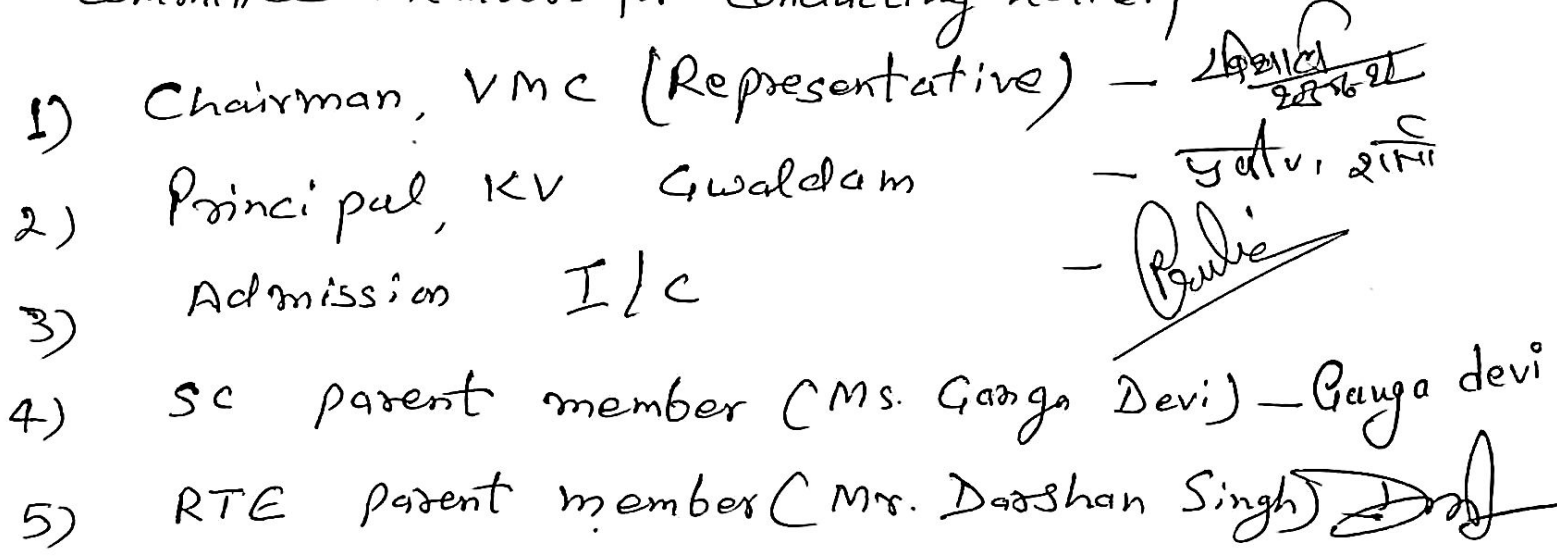 1) Chairman, VMC (Representative) -
2) Principal, KV Gwaldam -
3) Admission I/C -
4) SC parent member (Ms. Ganga Devi) - Ganga devi
5) RTE parent member (Mr. Darshan Singh)